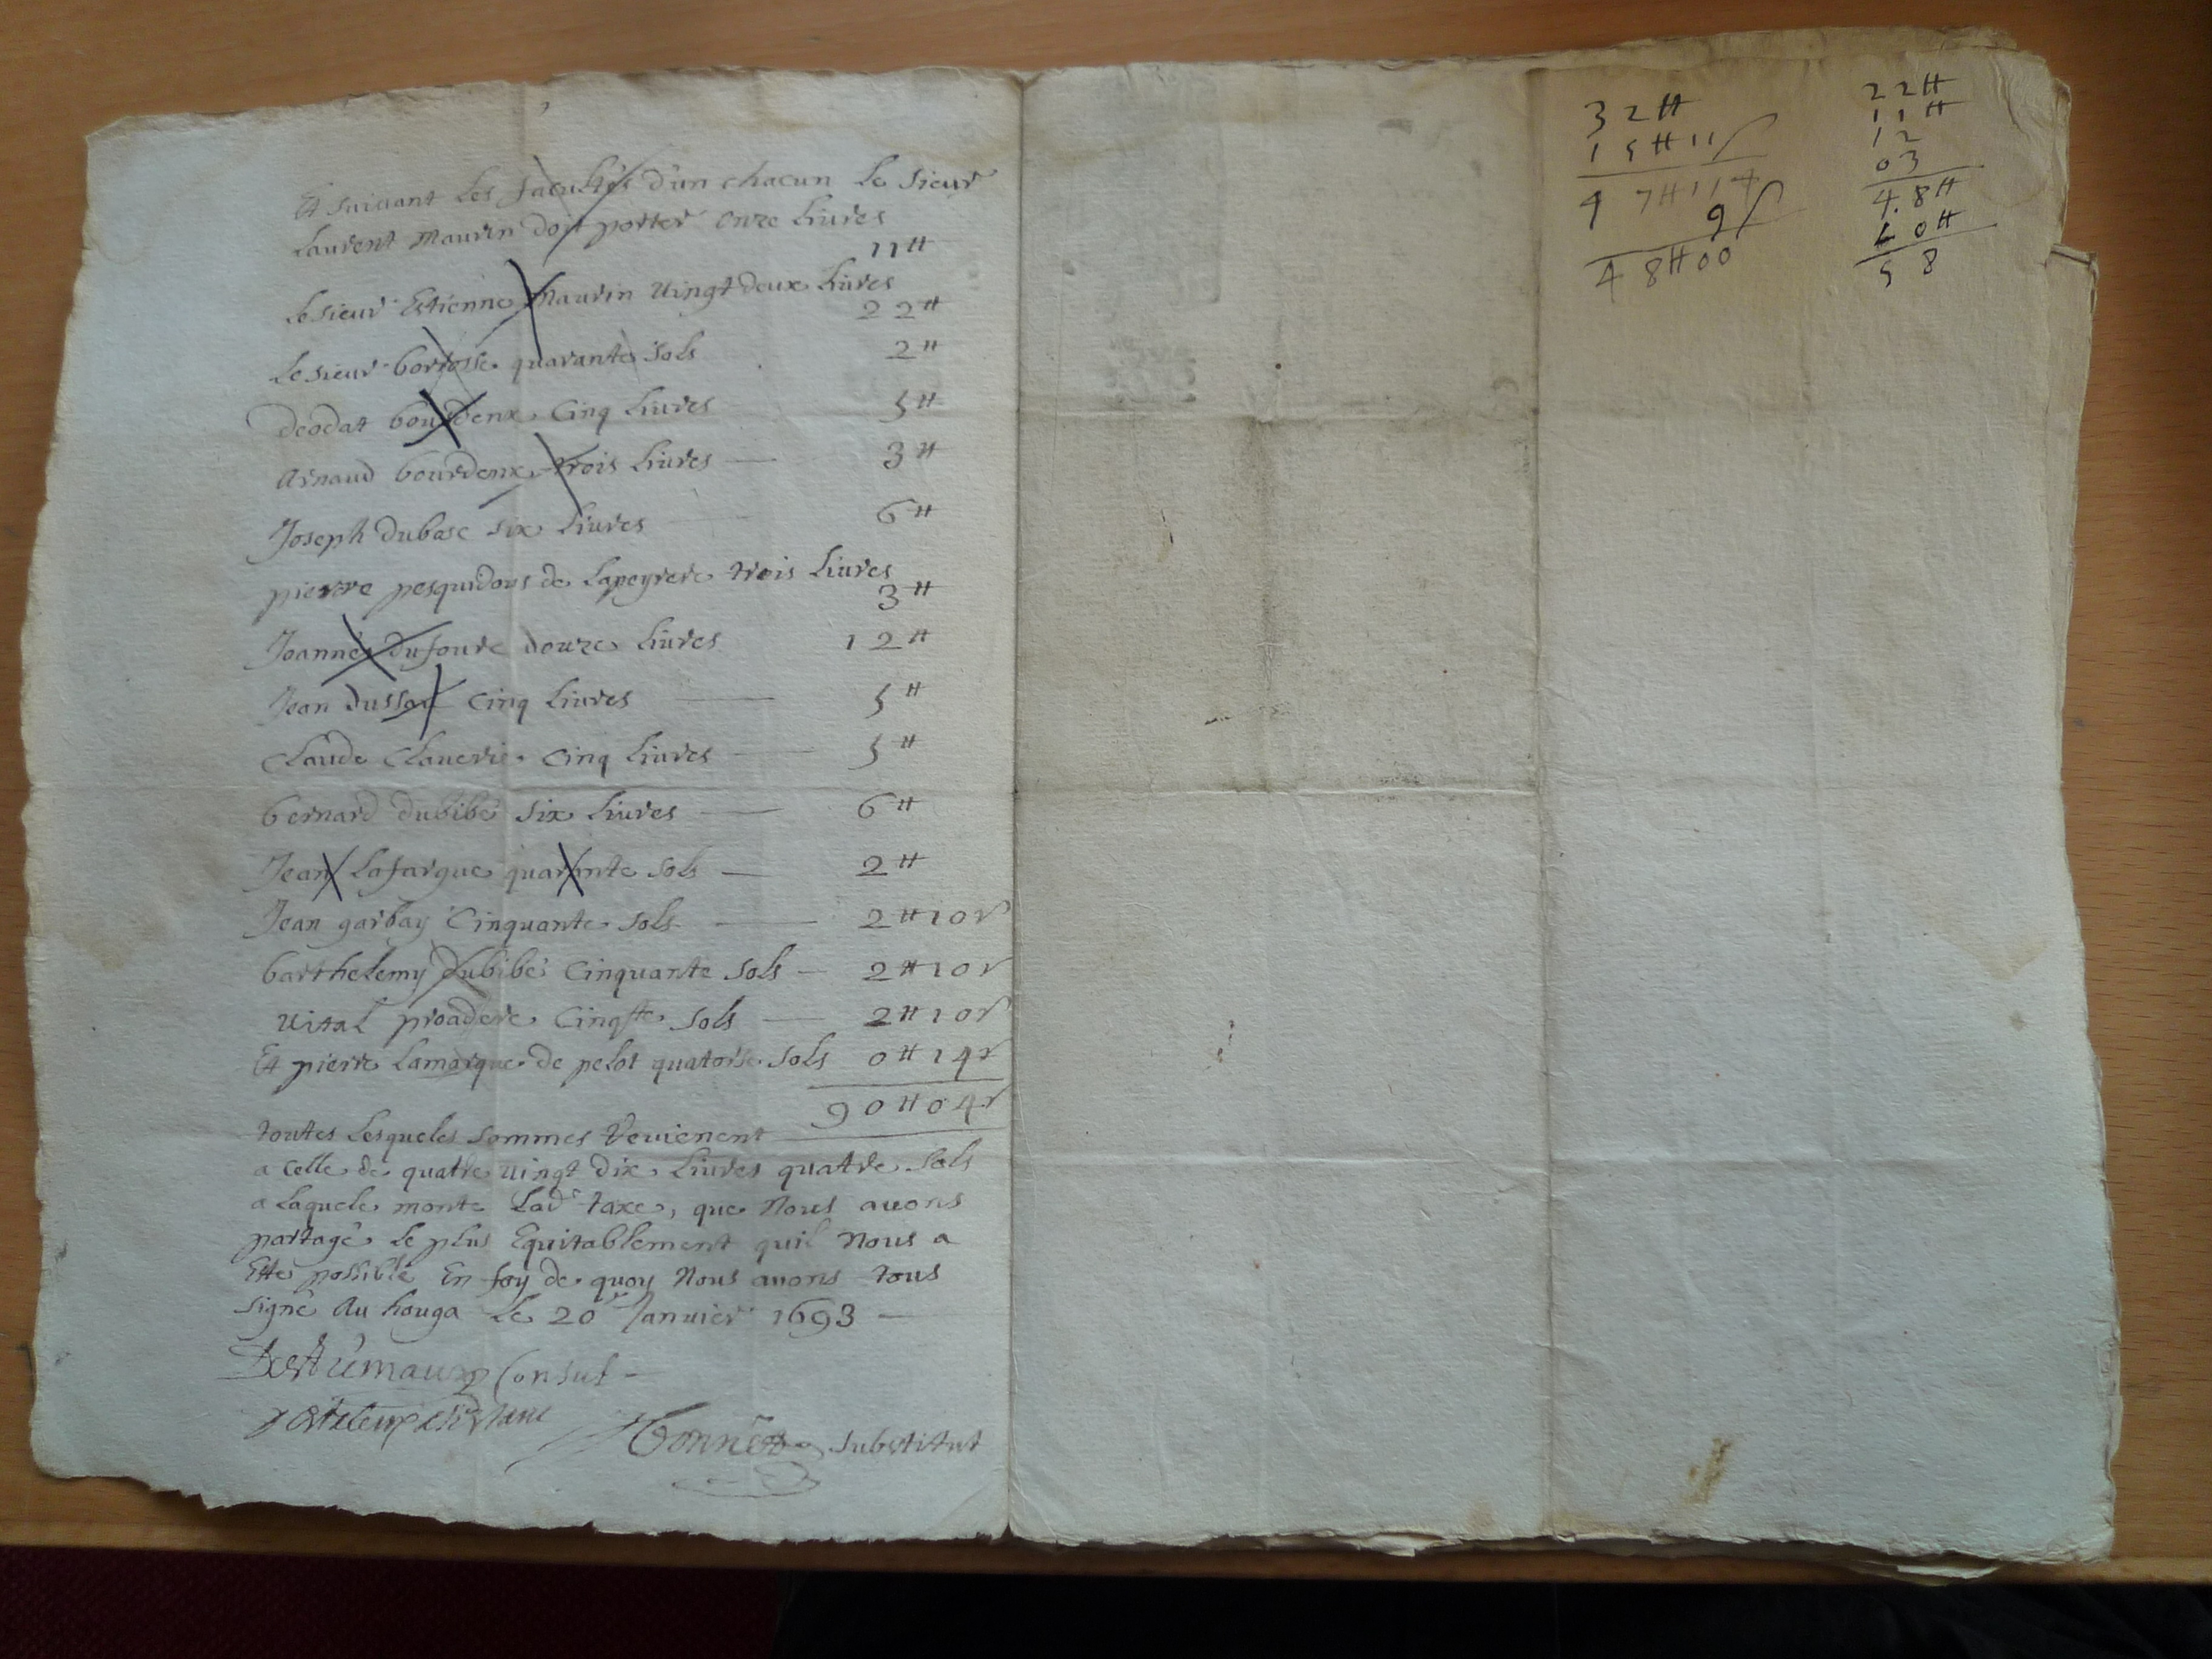 Et suivant les facultés d'un chacun le sieur
Laurent Maurin doit porter onze livres
11 ₶
Le sieur Estienne Maurin vingt deux livres
22 ₶
Le sieur quarante sols 2 ₶
deodat bourdenx cinq livres 5 ₶
Arnaud bourdenx trois livres — 3 ₶
Joseph dubosc six livres — 6 ₶
pierre pesquidous de Lapeyrere trois livres
3 ₶
Joannés dufourc douze livres 12 ₶
Jean dussau cinq livres — 5 ₶
Claude Claverie cinq livres — 5 ₶
bernard dubibé six livres — 6 ₶
Jean Lafargue quarante sols — 2 ₶
Jean garbay Cinquante sols — 2 ₶ 10 s
barthelemy dubibé Cinquante sols — 2 ₶ 10 s
vital proadere Cinqte sols — 2 ₶ 10 s
Et pierre Lamarque de pelot quatorse sols 0 ₶ 14 s
90 ₶ 04 s
toutes lesqueles sommes revienent
a celle de quatre vingt dix livres quatre sols
a laquele monte lade taxe, que nous avons
partagé le plus Equitablement quil nous a
Esté possible En foy de quoy nous avons tous
signé Au houga le 20e Janvier 1693 —
Consul —
substitut
32 ₶
15 ₶ 11 s
47 ₶ 11 s
9 s
48 ₶ 00
22 ₶
11 ₶
12
03
48 ₶
10 ₶
58